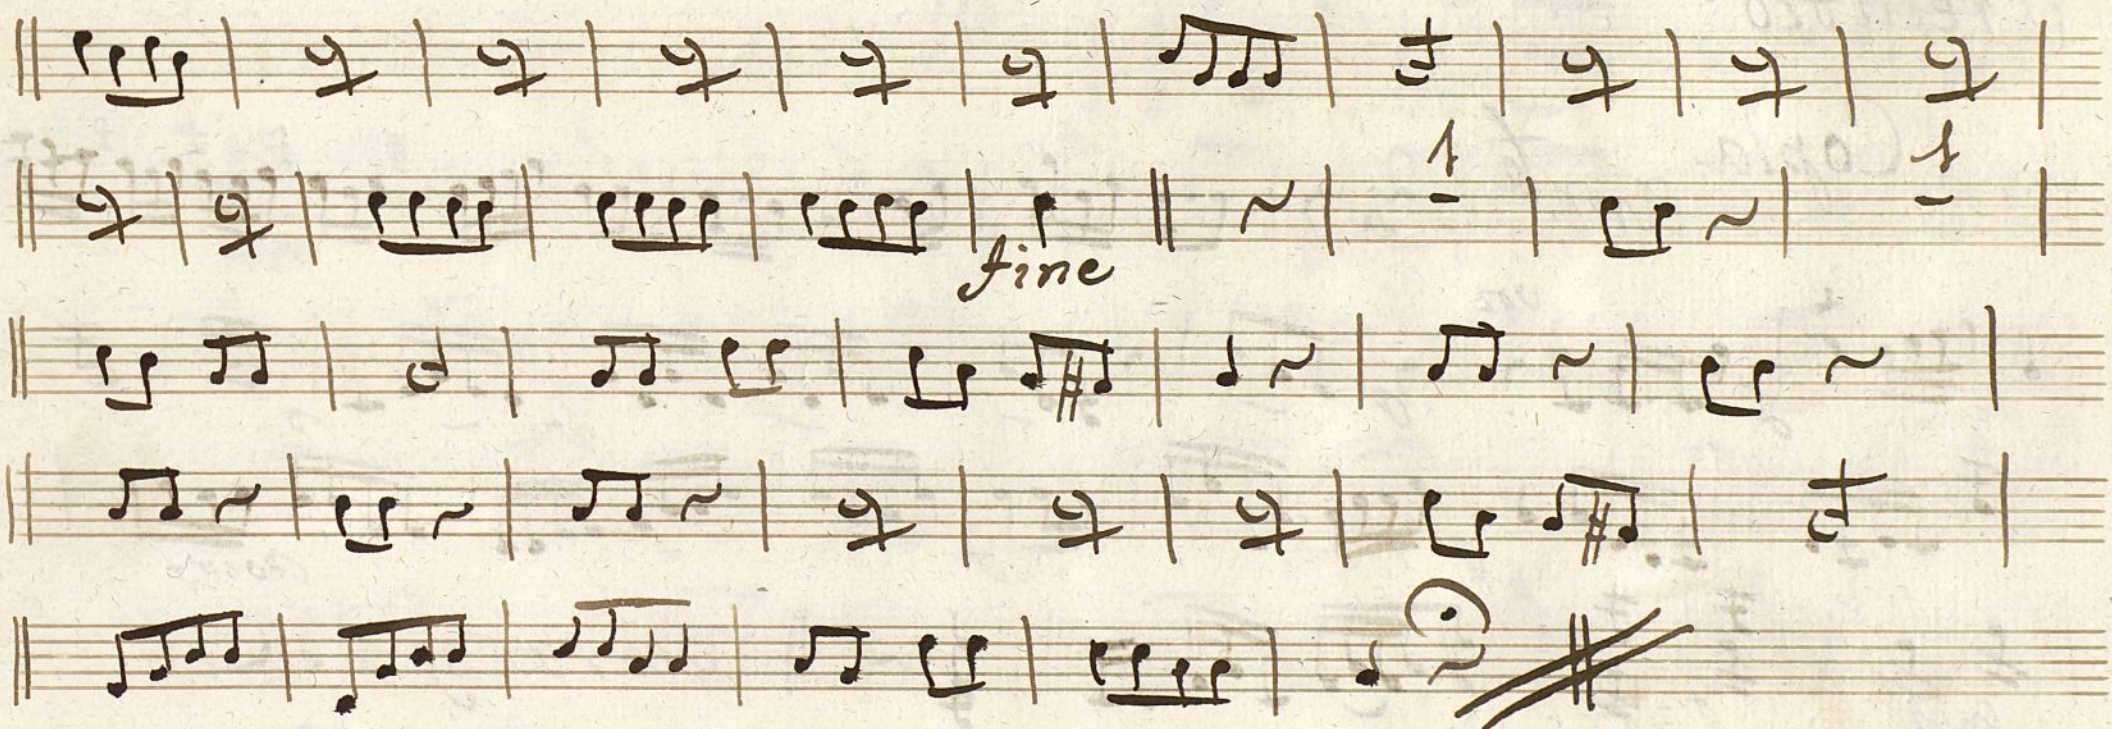 1 1
fine